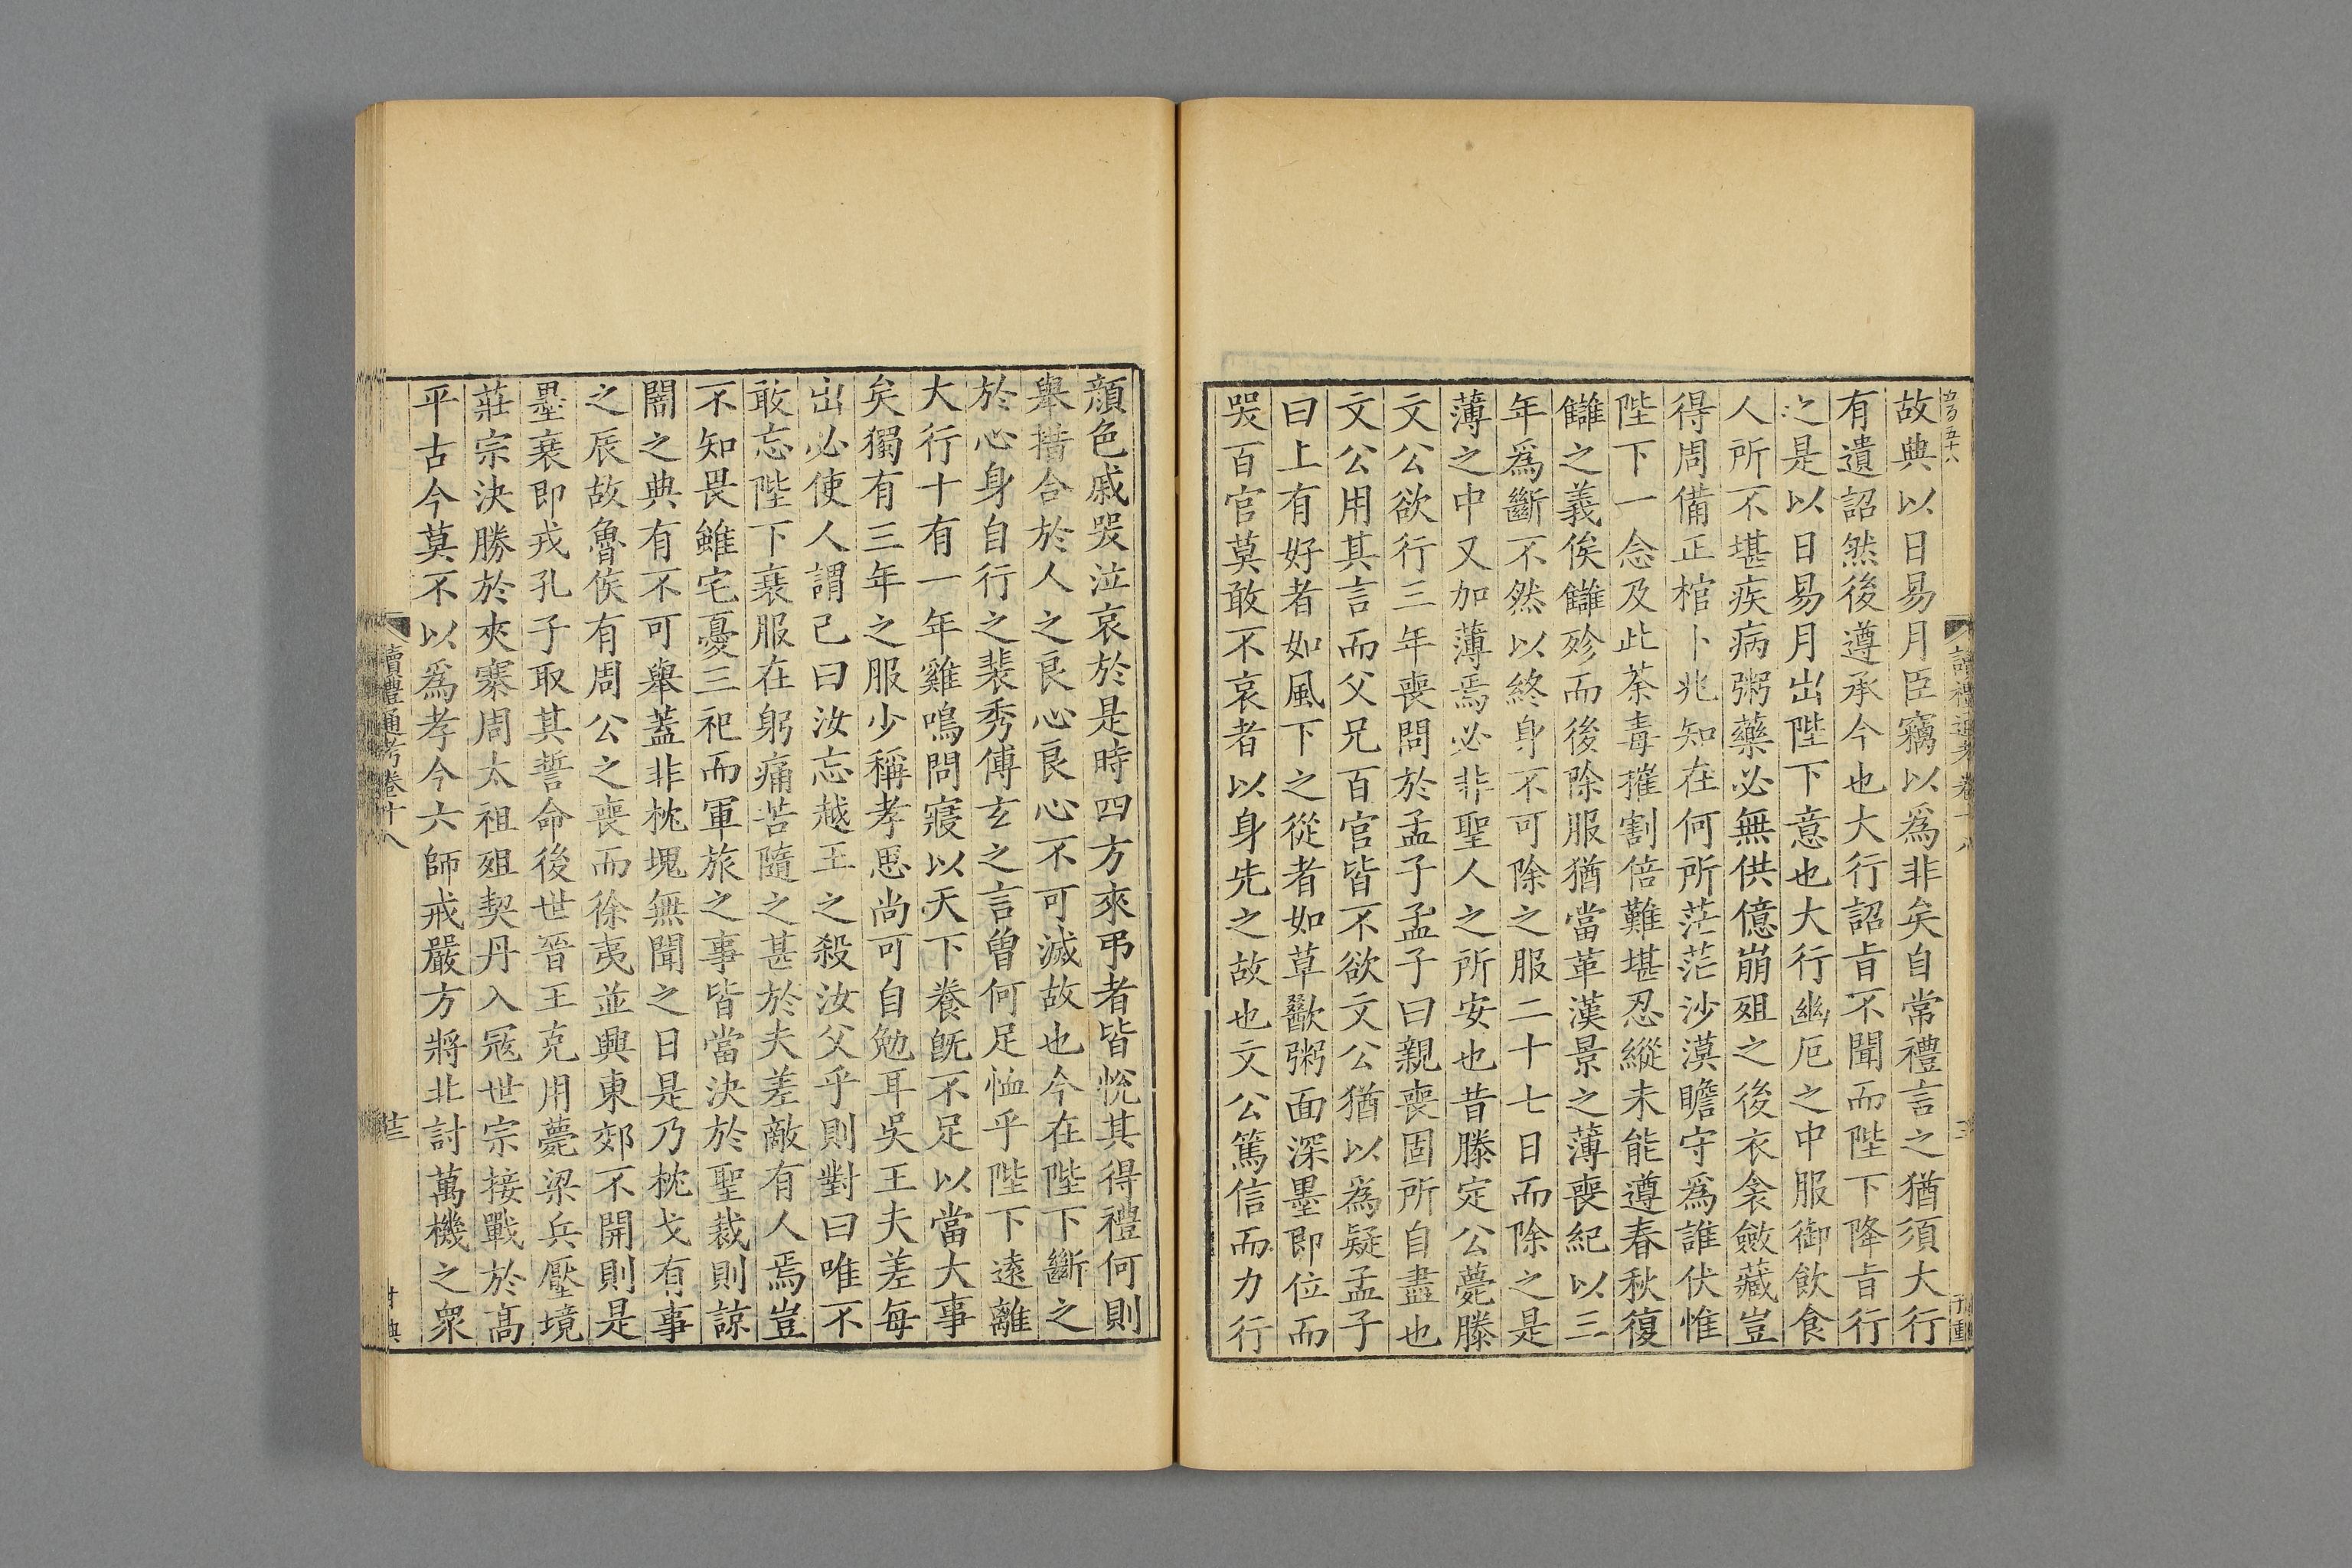 故典以日易月臣竊以爲非矣自常禮言之猶須大行
有遺詔然後遵承今也大行詔旨不聞而陛下降旨行
之是以日易月出陛下意也大行幽厄之中服御飲食
人所不堪疾病粥藥必無供億崩殂之後衣衾斂藏豈
得周備正棺卜兆知在何所茫茫沙漠瞻守爲誰伏惟
陛下一念及此荼毒摧割倍難堪忍縱未能遵春秋復
讎之義俟讎殄而後除服猶當革漢景之薄喪紀以三
年爲斷不然以終身不可除之服二十七日而除之是
薄之中又加薄焉必非聖人之所安也昔滕定公薨滕
文公欲行三年喪問於孟子孟子曰親喪固所自盡也
文公用其言而父兄百官皆不欲文公猶以爲疑孟子
曰上有好者如風下之從者如草歠粥面深墨即位而
哭百官莫敢不哀者以身先之故也文公篤信而力行
顔色戚哭泣哀於是時四方來弔者皆悅其得禮何則
舉措合於人之良心良心不可滅故也今在陛下斷之
於心身自行之裴秀傅玄之言曾何足恤乎陛下遠離
大行十有一年雞鳴問寢以天下養旣不足以當大事
矣獨有三年之服少稱孝思尚可自勉耳吳王夫差每
出必使人謂己曰汝忘越王之殺汝父乎則對曰唯不
敢忘陛下衰服在躬痛苦隨之甚於夫差敵有人焉豈
不知畏雖宅憂三祀而軍旅之事皆當決於聖裁則諒
闇之典有不可舉蓋非枕塊無聞之日是乃枕戈有事
之辰故魯侯有周公之喪而徐夷並興東郊不開則是
墨衰即戎孔子取其誓命後世晉王克用薨梁兵壓境
莊宗決勝於夾寨周太祖殂契丹入寇世宗接戰於高
平古今莫不以爲孝今六師戒嚴方將北討萬機之衆
讀禮通考卷十八